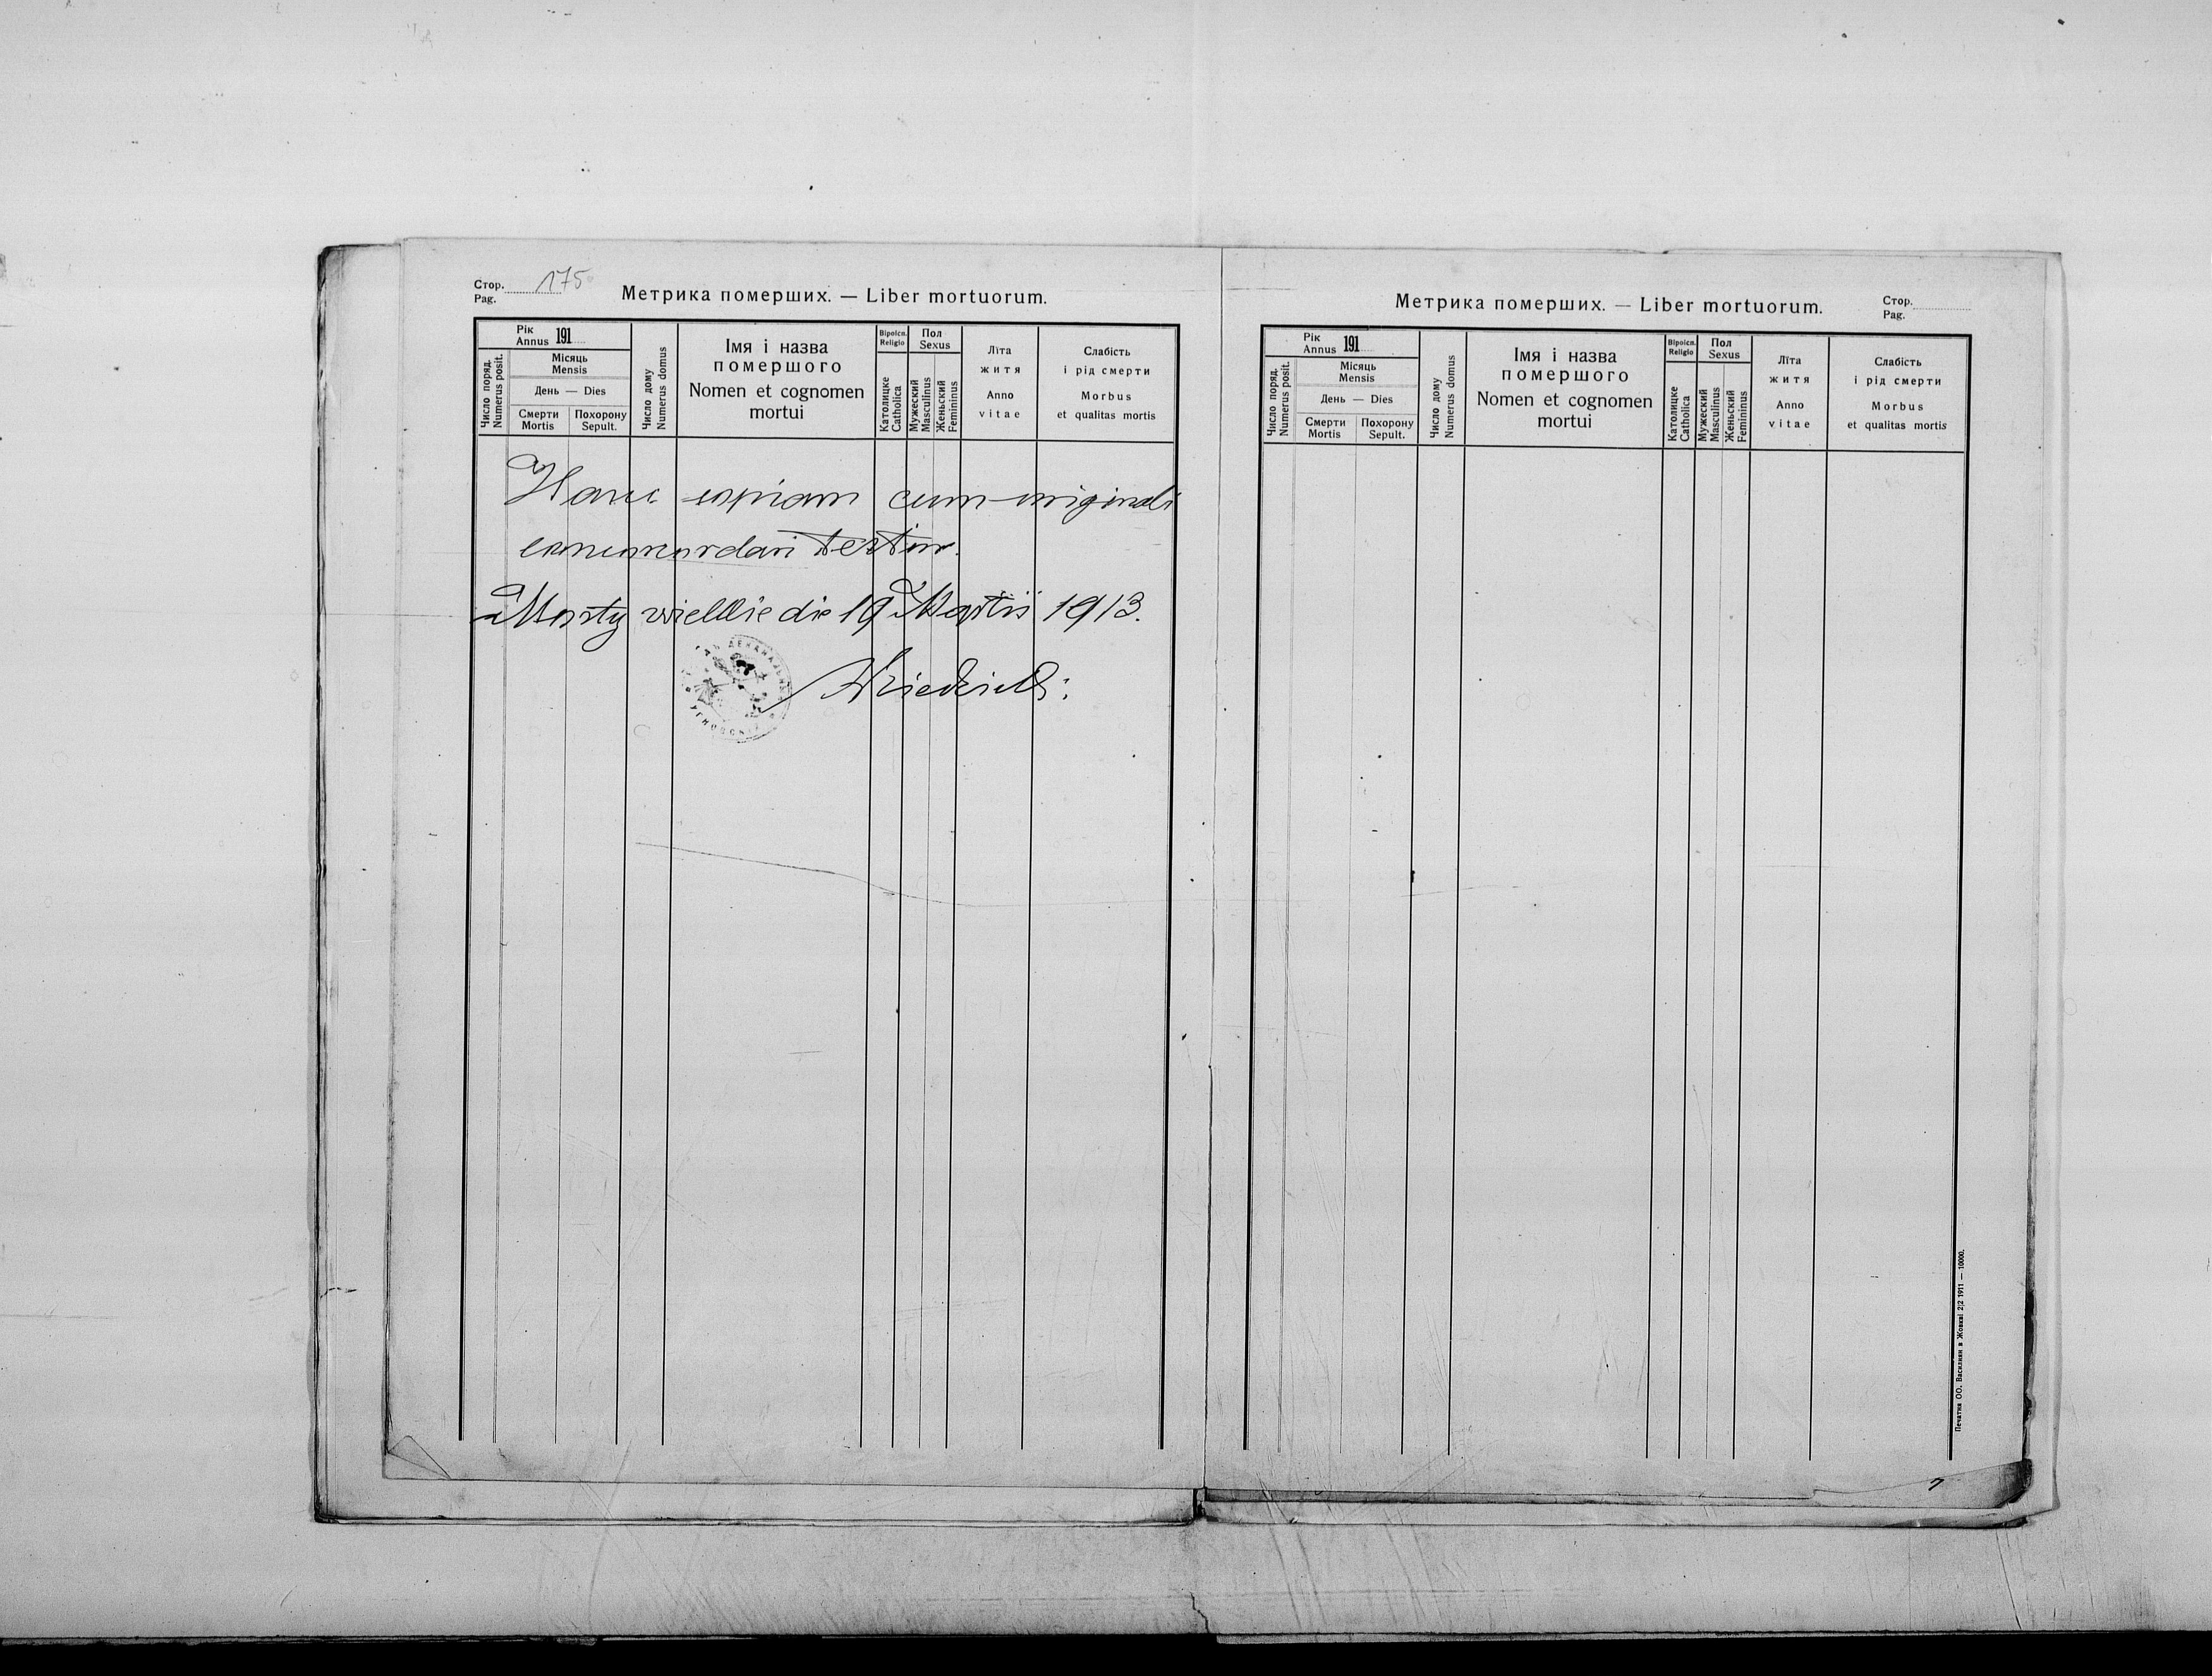 Стор. 175
Pag.
Метрика померших. — Liber mortuorum.
Число поряд.
Numerus posit.
Рік
Annus 191
Місяць
Mensis
День — Dies
Смерти
Mortis
Похорону
Sepult.
Число дому
Numerus domus
Імя і назва
помершого
Nomen et cognomen
mortui
Віроісп.
Religio
Католицке
Catholica
Пол
Sexus
Мужеский
Masculinus
Женьский
Femininus
Лїта
житя
Anno
vitae
Слабість
і рід смерти
Morbus
et qualitas mortis
Hanc copiam cum originali
concordari testor.
Mosty wielkie die 19 Martii 1913.
Метрика померших. — Liber mortuorum.
Стор.
Pag.
Число поряд.
Numerus posit.
Рік
Annus 191
Місяць
Mensis
День — Dies
Смерти
Mortis
Похорону
Sepult.
Число дому
Numerus domus
Імя і назва
помершого
Nomen et cognomen
mortui
Віроісп.
Religio
Католицке
Catholica
Пол
Sexus
Мужеский
Masculinus
Женьский
Femininus
Лїта
житя
Anno
vitae
Слабість
і рід смерти
Morbus
et qualitas mortis
Печатня ОО. Василиян в Жовкві 2|2 1911 — 10000.